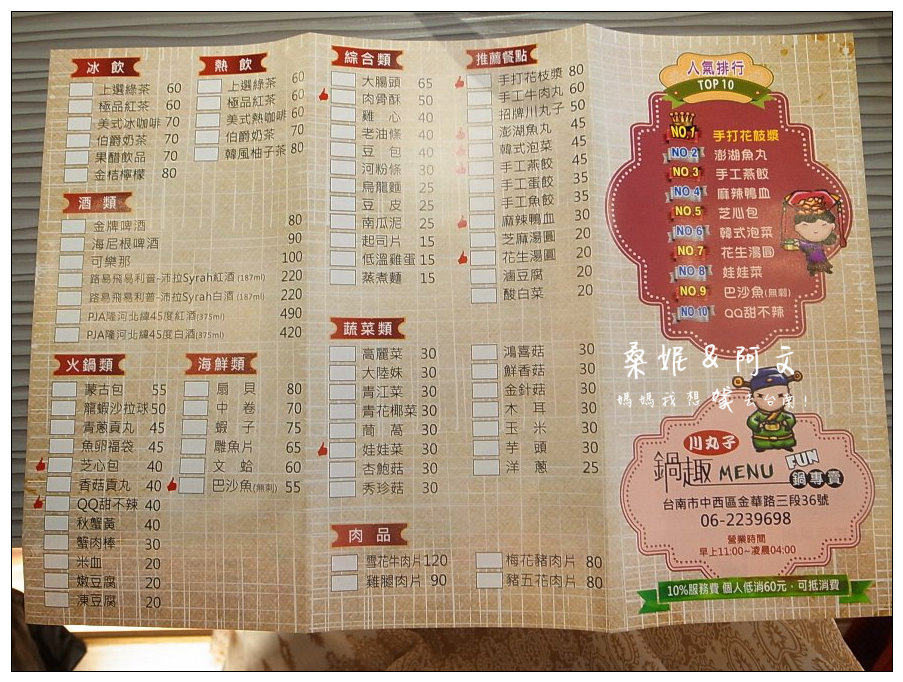 冰飲
上選綠茶 60
極品紅茶 60
美式冰咖啡 70
伯爵奶茶 70
果醋飲品 70
金桔檸檬 80
熱飲
上選綠茶 60
極品紅茶 60
美式熱咖啡 60
伯爵奶茶 70
韓風柚子茶 80
酒類
金牌啤酒 80
海尼根啤酒 90
可樂那 100
路易飛易利普-沛拉Syrah紅酒(187ml) 220
路易飛易利普-沛拉Syrah白酒(187ml) 220
PJA隆河北緯45度紅酒(375ml) 490
PJA隆河北緯45度白酒(375ml) 420
火鍋類
蒙古包 55
龍蝦沙拉球 50
青蔥貢丸 45
魚卵福袋 45
芝心包 40
香菇貢丸 40
QQ甜不辣 40
秋蟹黃 40
蟹肉棒 30
米血 20
嫩豆腐 20
凍豆腐 20
海鮮類
扇貝 80
中卷 70
蝦子 75
鯛魚片 65
文蛤 60
巴沙魚(無刺) 55
綜合類
大腸頭 65
肉骨酥 50
雞心 40
老油條 40
豆包 40
河粉條 30
烏龍麵 25
豆皮 25
南瓜泥 25
起司片 15
低溫雞蛋 15
蒸煮麵 15
推薦餐點
手打花枝漿 80
手工牛肉丸 60
招牌川丸子 50
澎湖魚丸 45
韓式泡菜 45
手工燕餃 45
手工蛋餃 35
手工魚餃 35
麻辣鴨血 30
芝麻湯圓 20
花生湯圓 20
滷豆腐 20
酸白菜 20
蔬菜類
高麗菜 30
大陸妹 30
青江菜 30
青花椰菜 30
茼萵 30
娃娃菜 30
杏鮑菇 30
秀珍菇 30
鴻喜菇 30
鮮香菇 30
金針菇 30
木耳 30
玉米 30
芋頭 30
洋蔥 25
肉品
雪花牛肉片 120
雞腿肉片 90
梅花豬肉片 80
豬五花肉片 80
人氣排行
TOP 10
NO 1 手打花枝漿
NO 2 澎湖魚丸
NO 3 手工燕餃
NO 4 麻辣鴨血
NO 5 芝心包
NO 6 韓式泡菜
NO 7 花生湯圓
NO 8 娃娃菜
NO 9 巴沙魚(無刺)
NO 10 QQ甜不辣
桑妮&阿文
媽媽我想嫁去台南!
川丸子
鍋趣 MENU FUN 鍋專賣
台南市中西區金華路三段36號
06-2239698
營業時間
早上11:00~凌晨04:00
10%服務費 個人低消60元.可抵消費